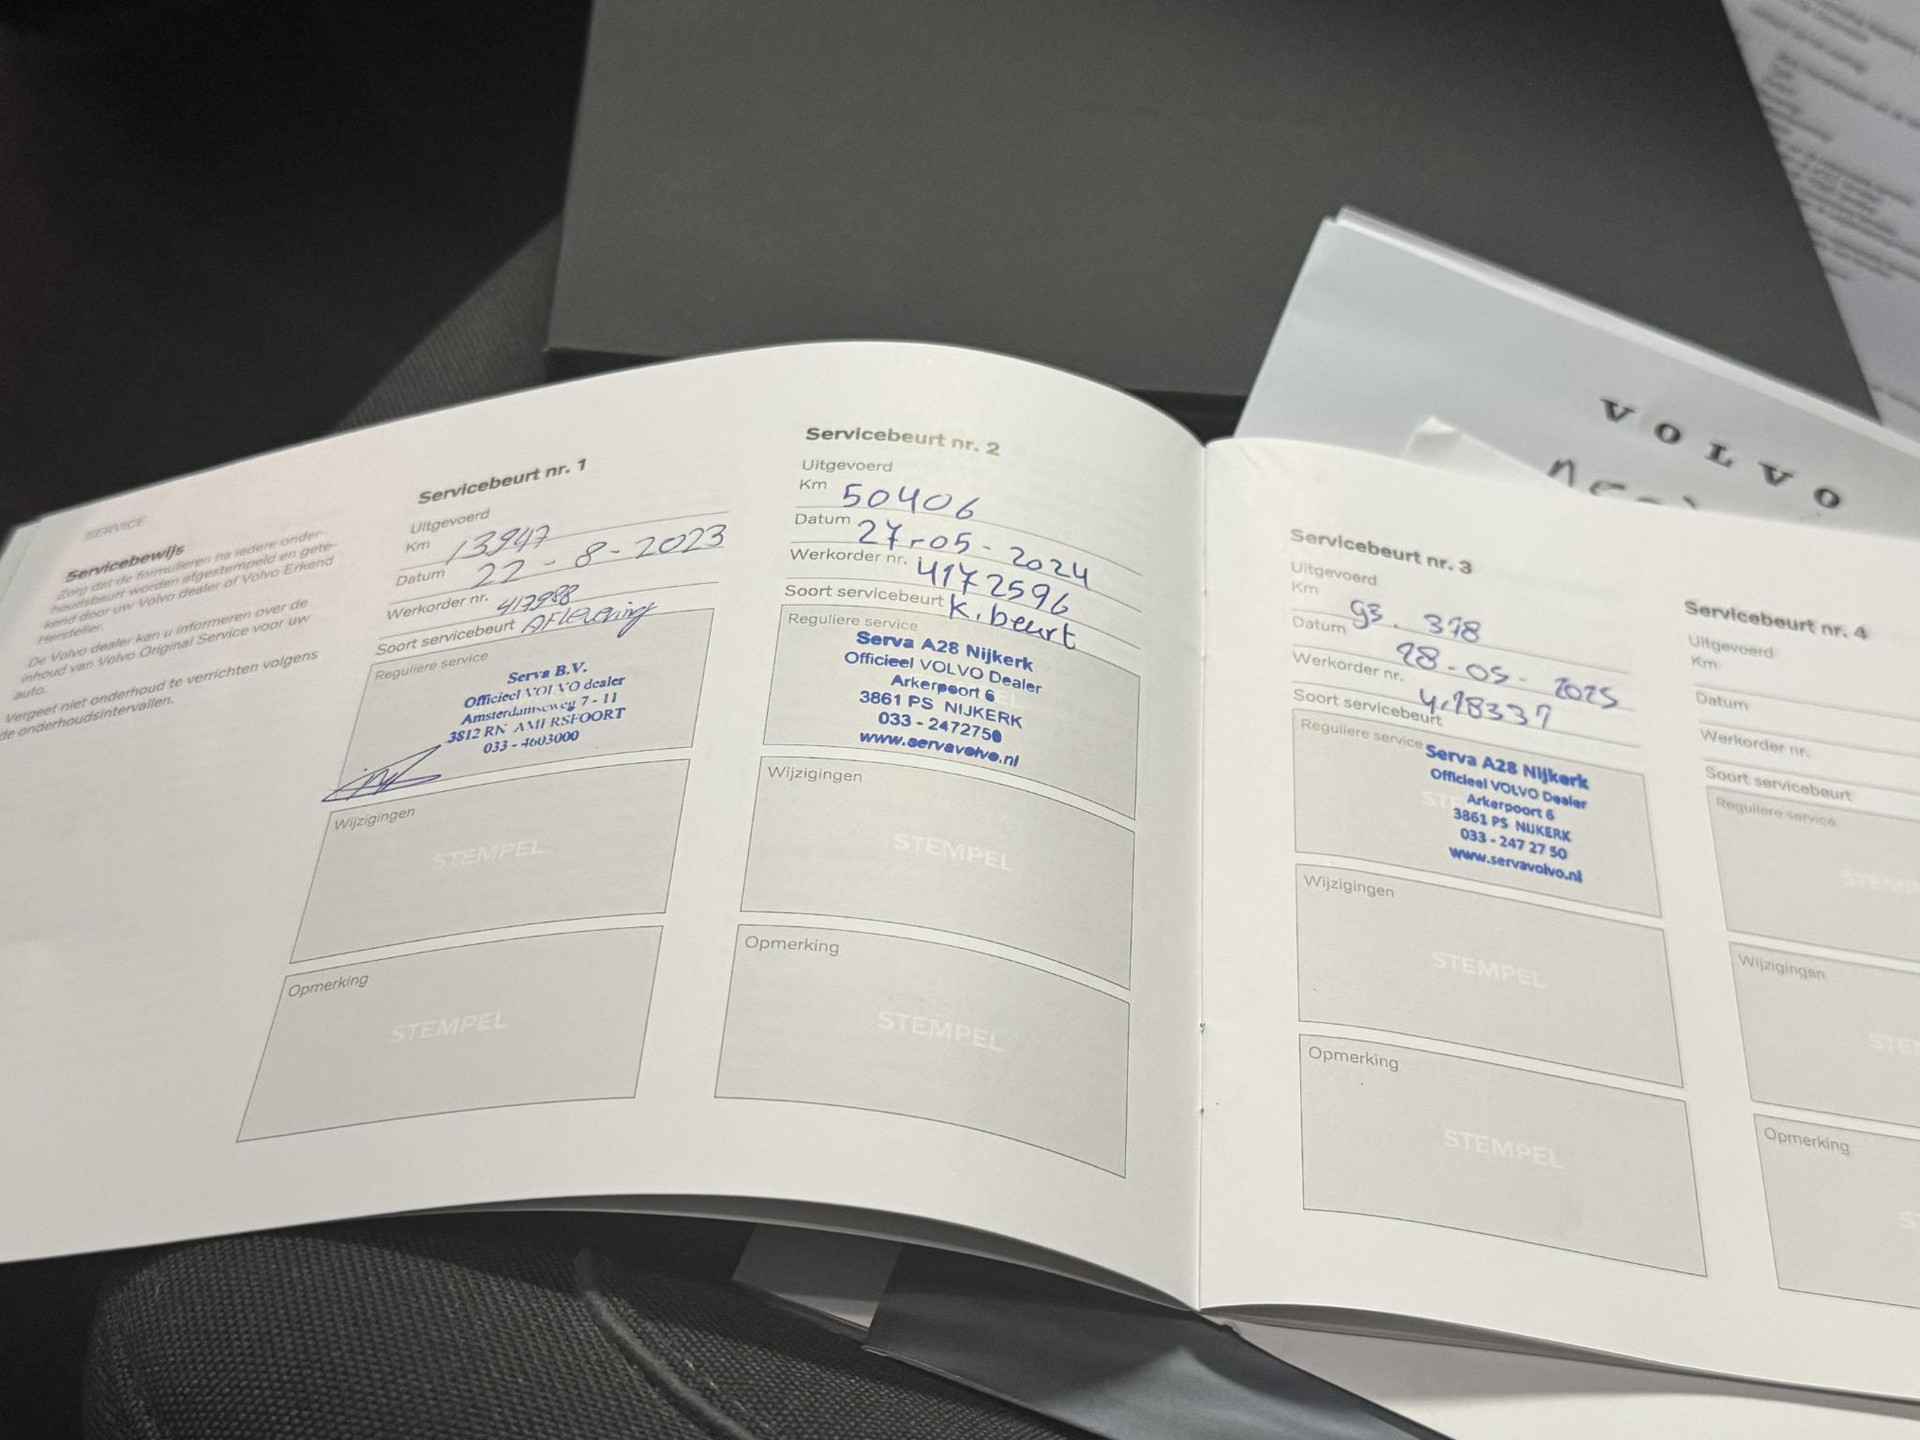 SERVICE
Servicebewijs
Zorg dat de formulieren na iedere onder-
houdsbeurt worden afgestempeld en gete-
kend door uw Volvo dealer of Volvo Erkend
Hersteller.
De Volvo dealer kan u informeren over de
inhoud van Volvo Original Service voor uw
auto.
Vergeet niet onderhoud te verrichten volgens
de onderhoudsintervallen.
Servicebeurt nr. 1
Uitgevoerd
Km 13947
Datum 22 - 8 - 2023
Werkorder nr. 417988
Soort servicebeurt Aflevering
Reguliere service
Serva B.V.
Officieel VOLVO dealer
Amsterdamseweg 7 - 11
3812 RN AMERSFOORT
033 - 4603000
Wijzigingen
STEMPEL
Opmerking
STEMPEL
Servicebeurt nr. 2
Uitgevoerd
Km 50406
Datum 27-05-2024
Werkorder nr. 4172596
Soort servicebeurt K.beurt
Reguliere service
Serva A28 Nijkerk
Officieel VOLVO Dealer
Arkerpoort 6
3861 PS NIJKERK
033 - 2472750
www.servavolvo.nl
Wijzigingen
STEMPEL
Opmerking
STEMPEL
Servicebeurt nr. 3
Uitgevoerd
Km 93.378
Datum 28-05-2025
Werkorder nr.
Soort servicebeurt
Reguliere service
Serva A28 Nijkerk
Officieel VOLVO Dealer
Arkerpoort 6
3861 PS NIJKERK
033 - 247 27 50
www.servavolvo.nl
Wijzigingen
STEMPEL
Opmerking
STEMPEL
Servicebeurt nr. 4
Uitgevoerd
Km
Datum
Werkorder nr.
Soort servicebeurt
Reguliere service
STEMP
Wijzigingen
STE
Opmerking
ST
VOLVO